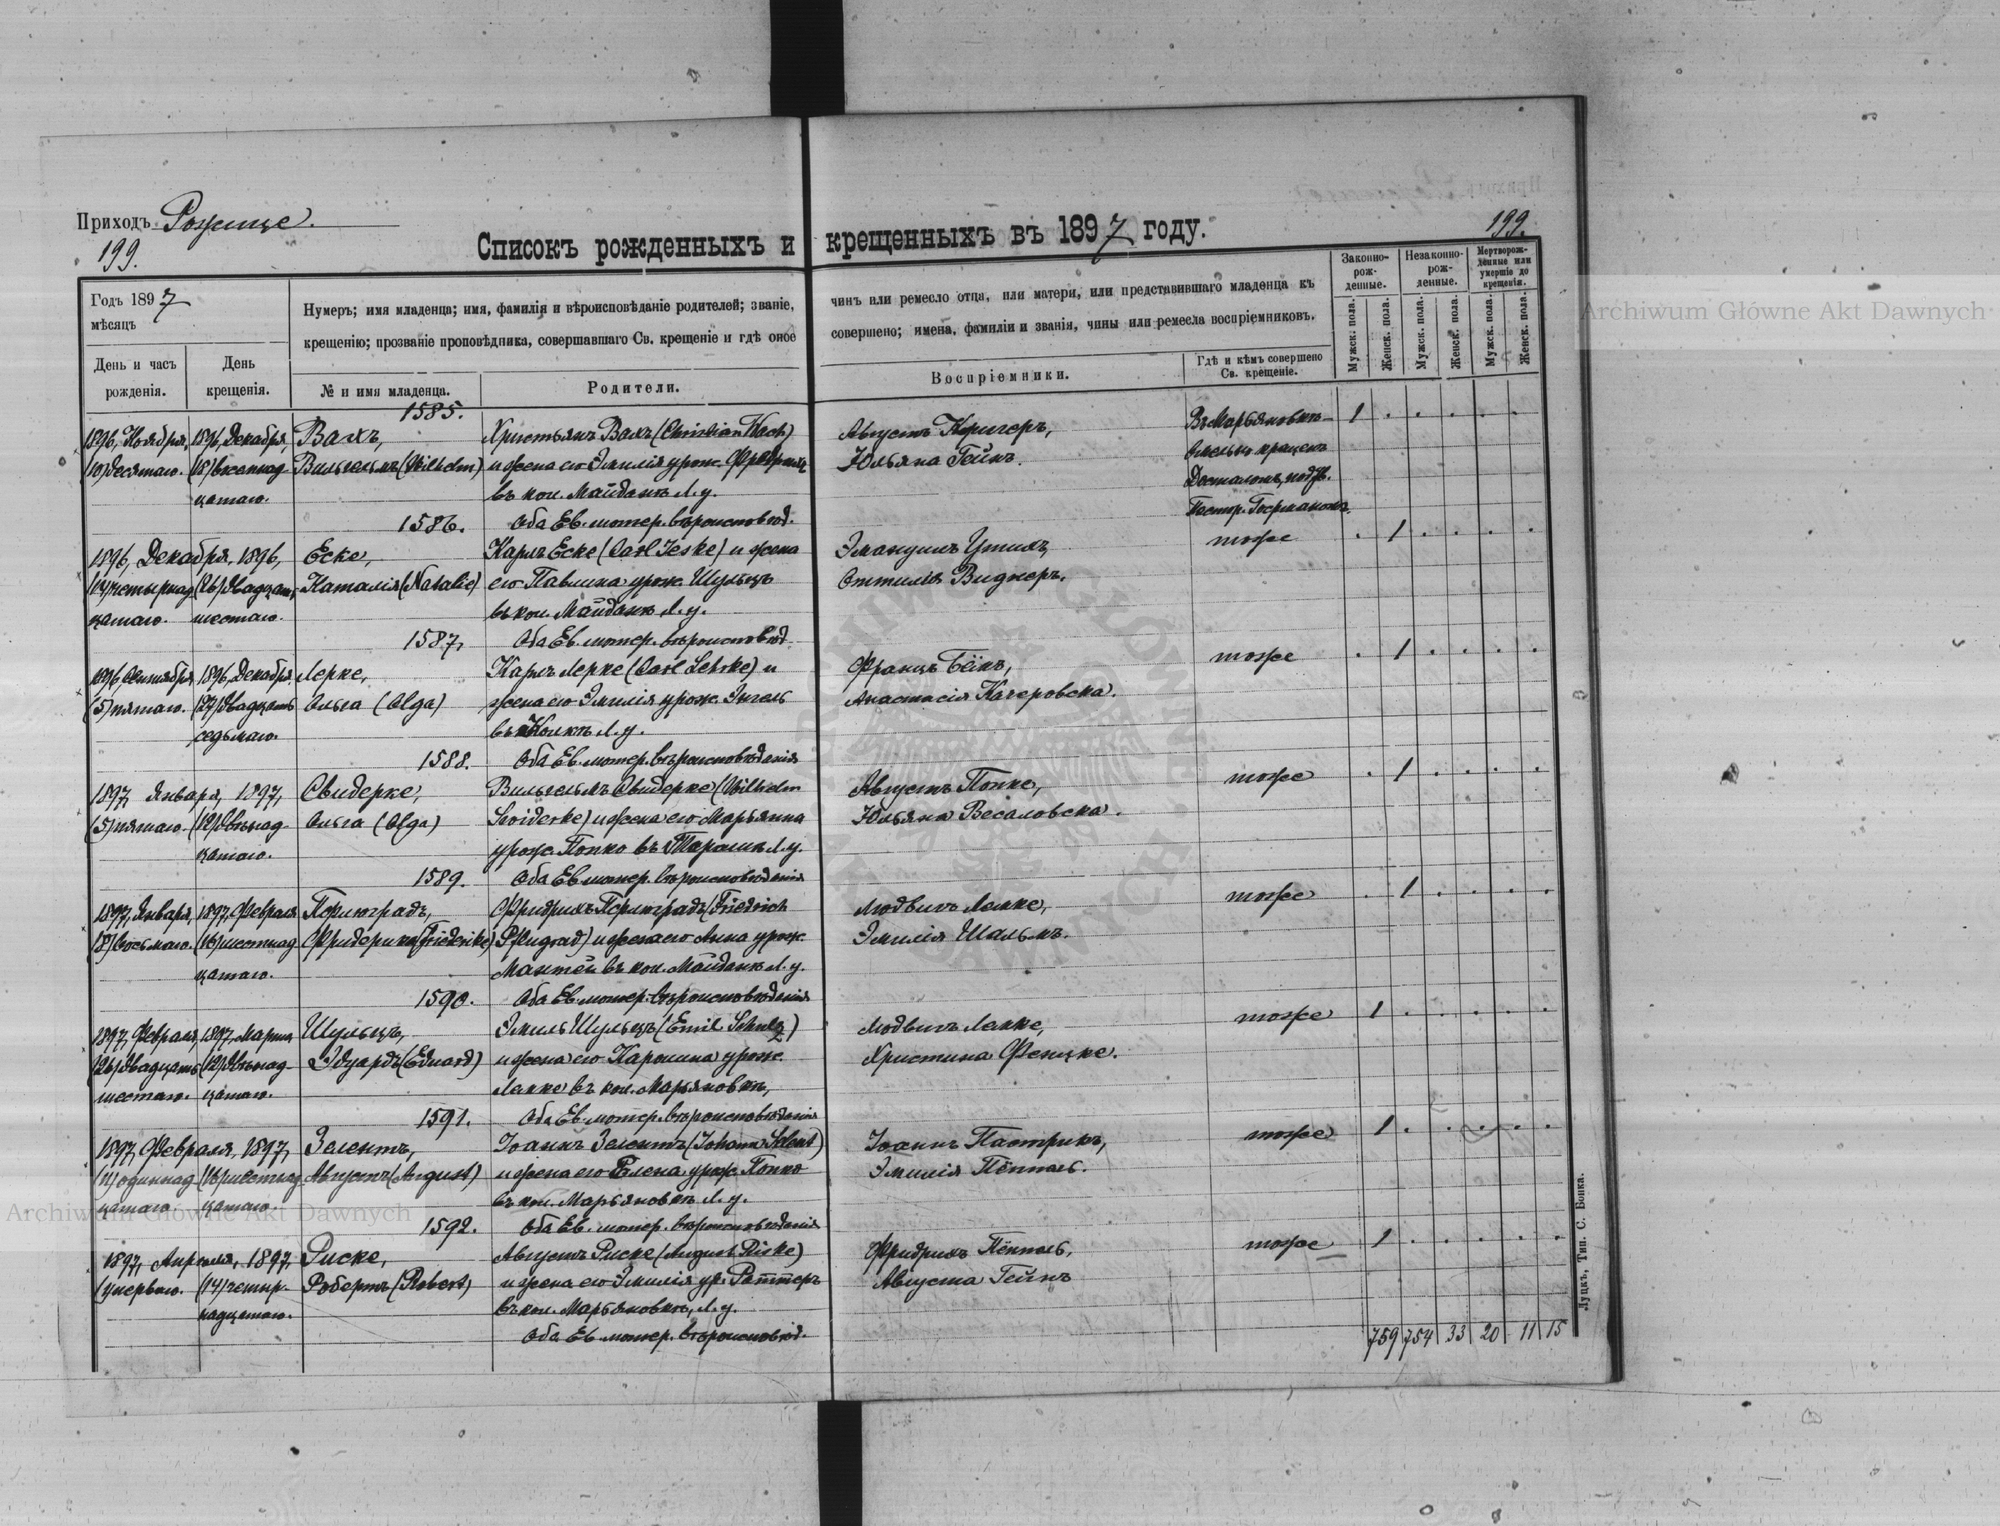 Приходъ Рожище.
199.
199.
Списокъ рожденныхъ и крещенныхъ въ 1897 году.
Годъ 1897
мѣсяцъ
День и часъ рожденія.
День крещенія.
Нумеръ; имя младенца; имя, фамилія и вѣроисповѣданіе родителей; званіе, чинъ или ремесло отца, или матери, или представившаго младенца къ
крещенію; прозваніе проповѣдника, совершавшаго Св. крещеніе и гдѣ оное совершено; имена, фамиліи и званія, чины или ремесла воспріемниковъ.
№ и имя младенца.
Родители.
Воспріемники.
Гдѣ и кѣмъ совершено Св. крещеніе.
Законно-рож-денные.
Незаконно-рож-денные.
Мертворож-денные или умершіе до крещенія.
Мужск. пола.
Женск. пола.
Мужск. пола.
Женск. пола.
Мужск. пола.
Женск. пола.
1585.
1896, Ноября, 1896, Декабря, Вахъ, Христьянъ Вахъ (Christian Wach) Августъ Кригеръ, Въ Марьяновкѣ 1
(10) десятаго. (18) восемнад- Вильгельмъ (Wilhelm) и жена его Эмилія урож. Юльяна Гейнъ.
цатаго. въ кол. Майданѣ Л. у.
1586. Оба Ев. лютер. вѣроисповѣд. Пастор.
1896, Декабря, 1896, Еске, Карлъ Еске (Carl Jeske) и жена Эмануилъ тоже 1
(14) четырнад- (26) двадцать Наталія (Natalie) его Павлина урож. Шульцъ Оттилія Виднеръ.
цатаго. шестаго. въ кол. Майданѣ Л. у.
1587, Оба Ев. лютер. вѣроисповѣд.
1896, Сентября, 1896, Декабря, Лерке, Карлъ Лерке (Carl Lehrke) и Францъ Бёкъ, тоже 1
(5) пятаго. (27) двадцать Ольга (Olga) жена его Эмилія урож. Энгель Анастасія Качеровска.
седьмаго. въ Колкѣ Л. у.
1588. Оба Ев. лютер. вѣроисповѣданія
1897, Января, 1897, Свидерке, Вильгельмъ Свидерке (Wilhelm Августъ Попке, тоже 1
(5) пятаго. (12) двѣнад- Ольга (Olga) Swiderke) и жена его Марьянна Юльяна Весаловска.
цатаго. урож. Попко въ Л. у.
1589. Оба Ев. лютер. вѣроисповѣданія
1897, Января, 1897, Февраля Пфлюградъ, Фридрихъ Пфлюградъ (Friedrich Людвигъ Лапке, тоже 1
(8) восьмаго. (16) шестнад- Фридерика (Friederike) Pflugrad) и жена его Анна урож. Эмилія Шальмъ.
цатаго. Мантей въ кол. Майданѣ Л. у.
1590. Оба Ев. лютер. вѣроисповѣданія
1897, Февраля, 1897, Марта Шульцъ, Эмиль Шульцъ (Emil Schulz) Людвигъ Лапке, тоже 1
(26) двадцать (12) двѣнад- Эдуардъ (Eduard) и жена его Каролина урож. Христина Фенцке.
шестаго. цатаго. Лапке въ кол. Марьяновкѣ,
1591. Оба Ев. лютер. вѣроисповѣданія
1897, Февраля, 1897, Зелентъ, Іоаннъ Зелентъ (Johann Selent) Іоаннъ Пастрикъ, тоже 1
(11) одиннад- (16) шестнад- Августъ (August) и жена его Елена урож. Попко Эмилія Пёппель.
цатаго. цатаго. въ кол. Марьяновкѣ Л. у.
1592. Оба Ев. лютер. вѣроисповѣданія
1897, Апрѣля, 1897, Риске, Августъ Риске (August Riske) Фридрихъ Пёппель, тоже 1
(1) перваго. (14) четыр- Робертъ (Robert) и жена его Эмилія ур. Раттеръ Августа Гейнъ
надцатаго. въ кол. Марьяновкѣ, Л. у.
Оба Ев. лютер. вѣроисповѣд.
759 754 33 20 11 15
Луцкъ, Тип. С. Бонка.
Archiwum Główne Akt Dawnych
Archiwum Główne Akt Dawnych